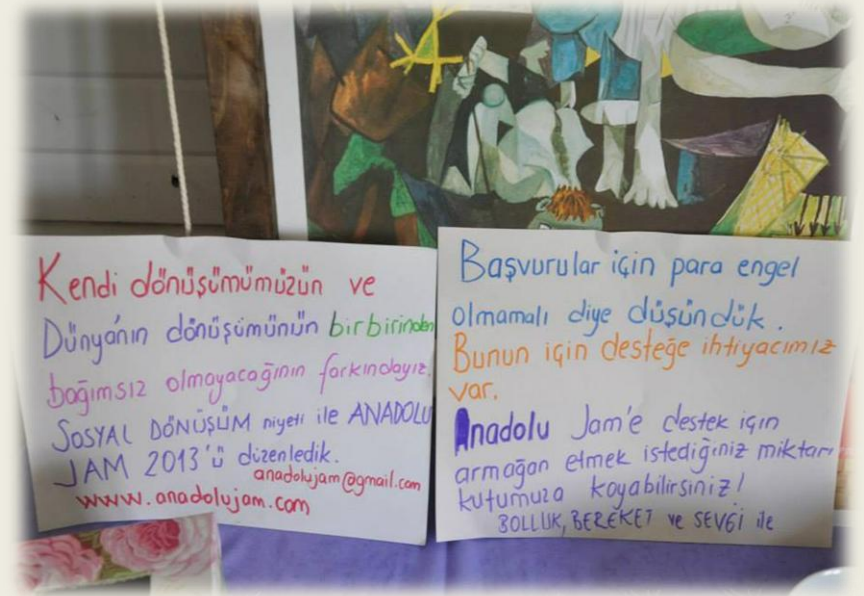 Kendi dönüşümümüzün ve
Dünya'nın dönüşümünün birbirinden
bağımsız olmayacağının farkındayız.
SOSYAL DÖNÜŞÜM niyeti ile ANADOLU
JAM 2013'ü düzenledik.
anadolujam@gmail.com
www.anadolujam.com
Başvurular için para engel
olmamalı diye düşündük.
Bunun için desteğe ihtiyacımız
var.
Anadolu Jam'e destek için
armağan etmek istediğiniz miktarı
kutumuza koyabilirsiniz!
BOLLUK, BEREKET ve SEVGİ ile